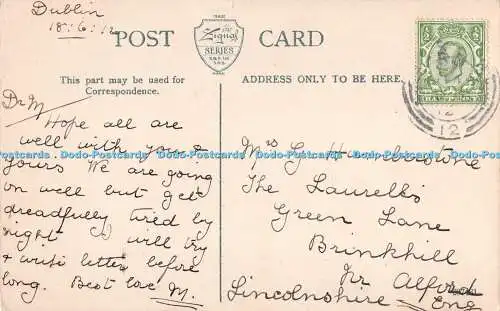 Dublin
18.6.12
POST CARD
TRADE MARK
Signal
SERIES
This part may be used for
Correspondence.
ADDRESS ONLY TO BE HERE.
Dr M
Hope all are
well with you &
yours We are going
on well but get
dreadfully tired by
night I will try
& write letter before
long. Best love M.
Mrs G. H.
The Laurells
Green Lane
Brinkhill
Nr Alford
Lincolnshire Eng
HALFPENNY
12
12
Dodo-Postcards Dodo-Postcards Dodo-Postcards Dodo-Postcards